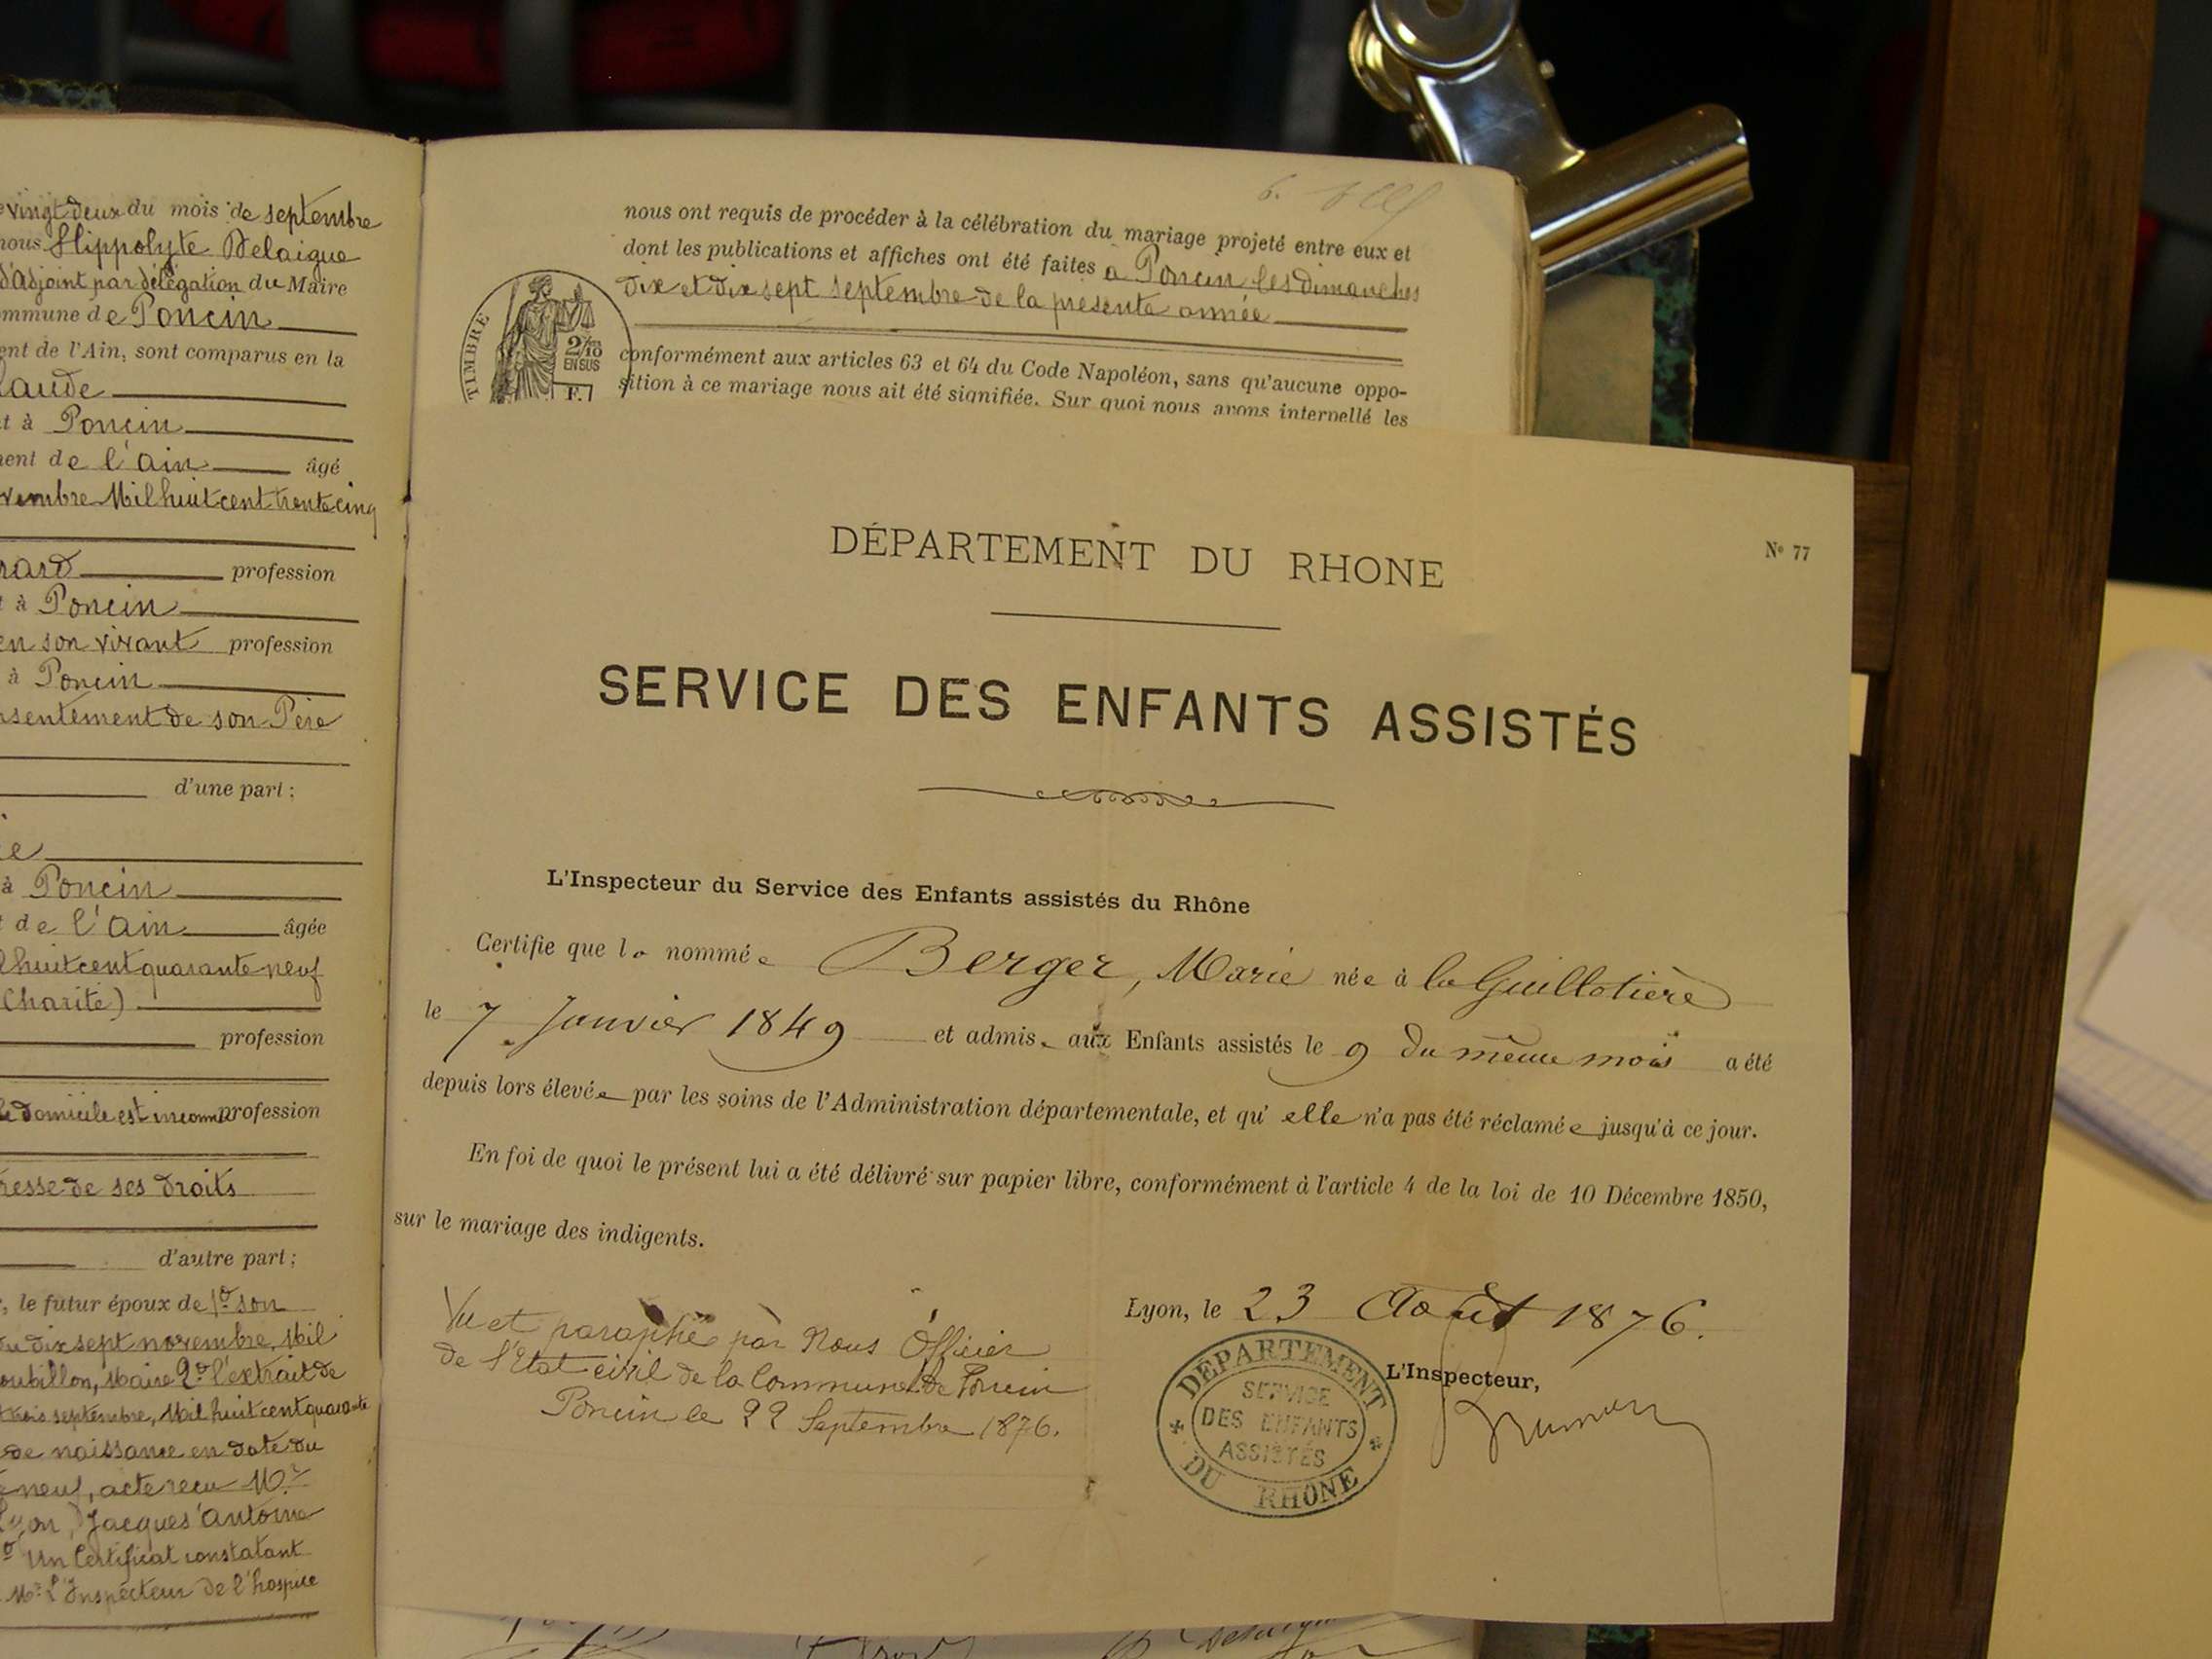 vingt deux du mois de septembre
nous Hippolyte Delaigue
d'adjoint par délégation du Maire
mmune de Poncin
ent de l'Ain, sont comparus en la
laude
t à Poncin
ment de l'ain âgé
vembre Mil huit cent trente cinq
rard profession
t à Poncin
en son vivant profession
à Poncin
nsentement de son Père
d'une part ;
e
à Poncin
t de l'ain âgée
l huit cent quarante neuf
Charité)
profession
le domicile est inconnu profession
resse de ses droits
d'autre part ;
, le futur époux de 1º son
du dix sept novembre, Mil
oubillon, Maire 2º l'extrait de
t trois septembre, Mil huit cent quarante
de naissance en date du
é neuf, acte recu Mr
Lyon, Jacques Antoine
º Un Certificat constatant
Mr L'Inspecteur de l'hospice
6.
nous ont requis de procéder à la célébration du mariage projeté entre eux et
dont les publications et affiches ont été faites à Poncin les dimanches
dix et dix sept septembre de la présente année
TIMBRE
2/10
EN SUS
F.
conformément aux articles 63 et 64 du Code Napoléon, sans qu'aucune oppo-
sition à ce mariage nous ait été signifiée. Sur quoi nous avons interpellé les
DÉPARTEMENT DU RHONE
Nº 77
SERVICE DES ENFANTS ASSISTÉS
L'Inspecteur du Service des Enfants assistés du Rhône
Certifie que la nommée Berger, Marie née à la Guillotière
le 7 Janvier 1849 et admise aux Enfants assistés le 9 du même mois a été
depuis lors élevée par les soins de l'Administration départementale, et qu'elle n'a pas été réclamée jusqu'à ce jour.
En foi de quoi le présent lui a été délivré sur papier libre, conformément à l'article 4 de la loi de 10 Décembre 1850,
sur le mariage des indigents.
Vu et paraphé par Nous Officier
de l'Etat civil de la Commune de Poncin
Poncin le 22 Septembre 1876.
Lyon, le 23 Août 1876.
L'Inspecteur,
DÉPARTEMENT DU RHÔNE
SERVICE
DES ENFANTS
ASSISTÉS